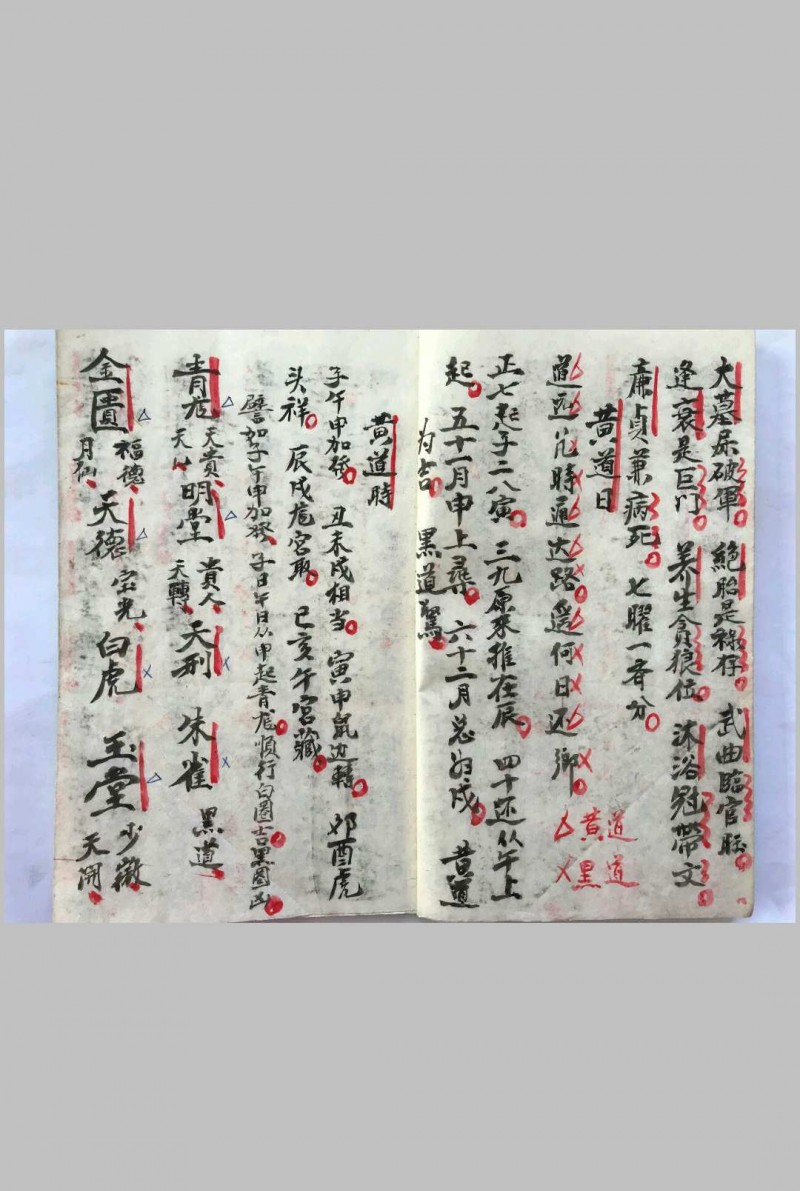 大墓屎破軍 絕胎是祿存 武曲臨官旺
逢衰是巨門 养生貪狼位 沐浴冠帶文
廉貞兼病死 七曜一各分
黄道日
道远几時通达 路遥何日还鄉
正七起子二八寅 三九原來推在辰 四十还从午上
起 五十一月申上尋 六十二月总为戌 黄道
为吉 黑道驚
△黄道
×黑道
黄道時
子午申加發 丑未戌相当 寅申鼠边轉 卯酉虎
头祥 辰戌龙宮取 巳亥午宮藏
譬如子午申加發 子日午日从申起青龙順行白圈吉黑圈凶
青龙 天貴 明堂 貴人 天刑 朱雀 黑道
天轉
金匱 福德 月仙 天德 宝光 白虎 玉堂 少微 天開